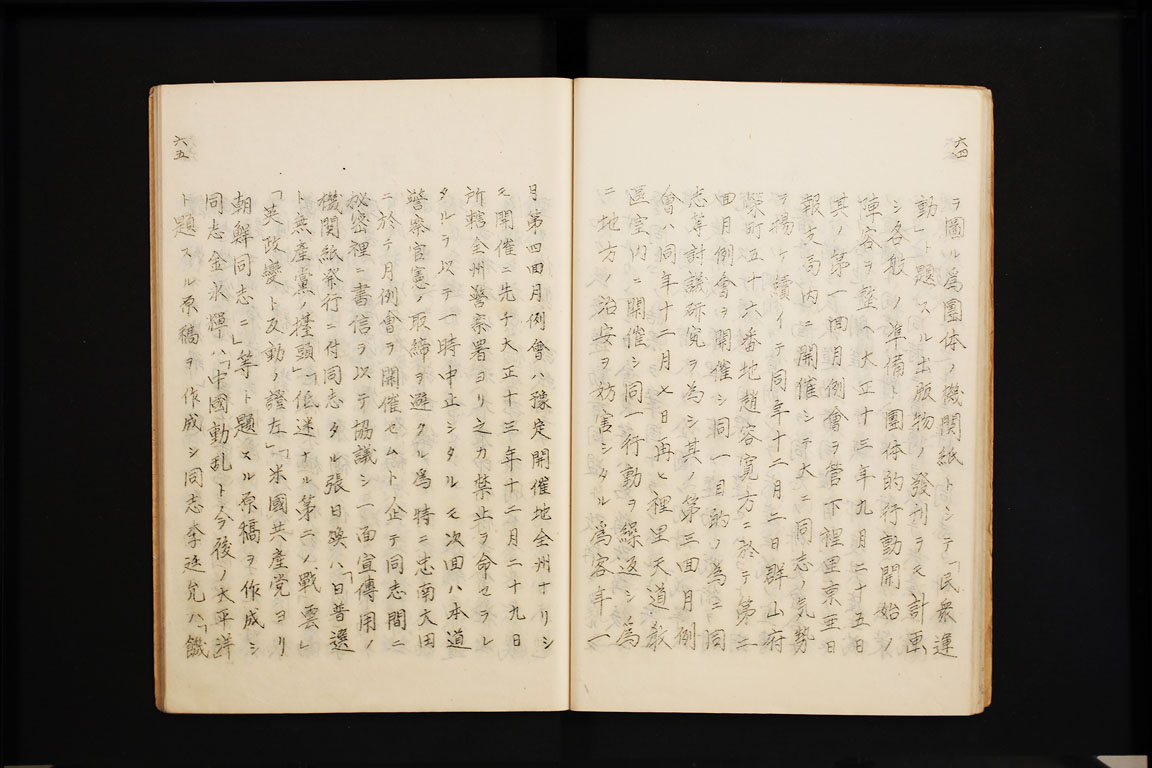 六四
ヲ圖ル爲團体ノ機関紙トシテ「民衆運
動」ト題スル出版物ノ發刊ヲモ計画
シ各般ノ準備ト團体的行動開始ノ
陣容ヲ整ヘ大正十三年九月二十五日
其ノ第一回月例會ヲ管下裡里東亜日
報支局内ニ開催シテ大ニ同志ノ気勢
ヲ揚ケ續イテ同年十二月二日群山府
榮町五十六番地趙容寛方ニ於テ第二
回月例會ヲ開催シ同一目的ノ為ニ同
志等討議研究ヲ為シ其ノ第三回月例
會ハ同年十二月七日再ヒ裡里天道教
區室内ニ開催シ同一行動ヲ繰返シ為
ニ地方ノ治安ヲ妨害シタル爲客年一
月第四回月例會ハ豫定開催地全州ナリシ
モ開催ニ先チ大正十三年十二月二十九日
所轄全州警察署ヨリ之カ禁止ヲ命セラレ
タルヲ以テ一時中止シタルモ次回ハ本道
警察官憲ノ取締ヲ避クル爲特ニ忠南大田
ニ於テ月例會ヲ開催セムト企テ同志間ニ
秘密裡ニ書信ヲ以テ協議シ一面宣傳用ノ
機関紙発行ニ付同志タル張日煥ハ「日普選
ト無產黨ノ擡頭」「低迷ナル第二ノ戰雲」
「英政變ト反動ノ證左」「米國共產党ヨリ
朝鮮同志ニ」等ト題スル原稿ヲ作成シ
同志金永輝ハ「中國動乱ト今後ノ太平洋
ト題スル原稿ヲ作成シ同志李廷允ハ「饑
六五